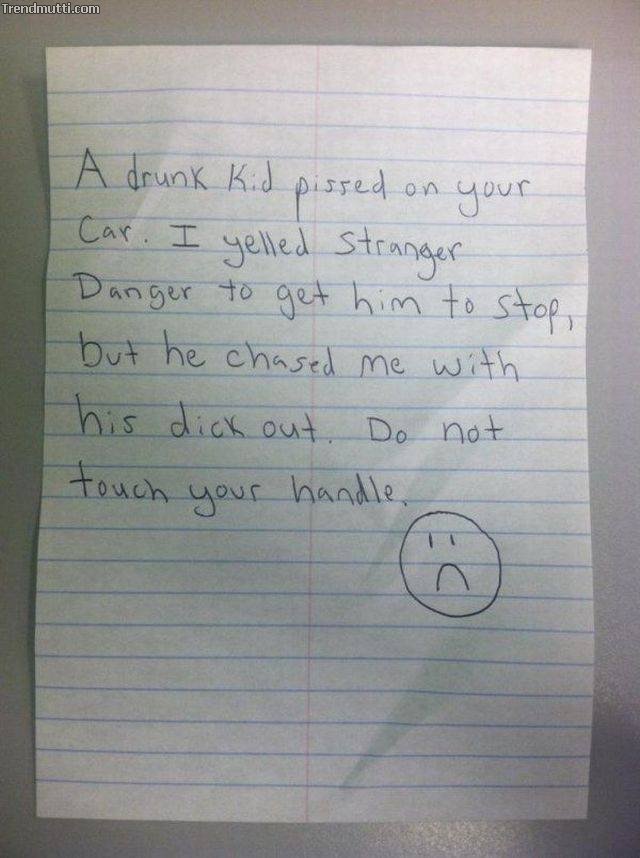 Trendmutti.com
A drunk Kid pissed on your
Car. I yelled Stranger
Danger to get him to stop,
but he chased me with
his dick out. Do not
touch your handle.